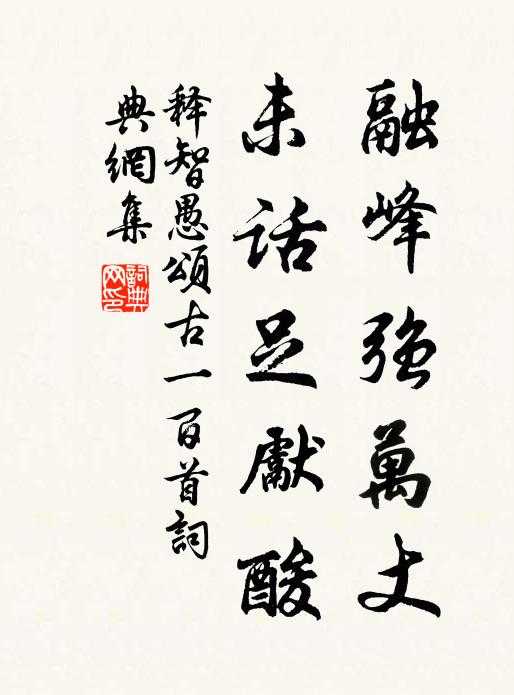 融峰強萬丈
未話足獻酸
释智愚頌古一百首詞
典網集
詞典网印